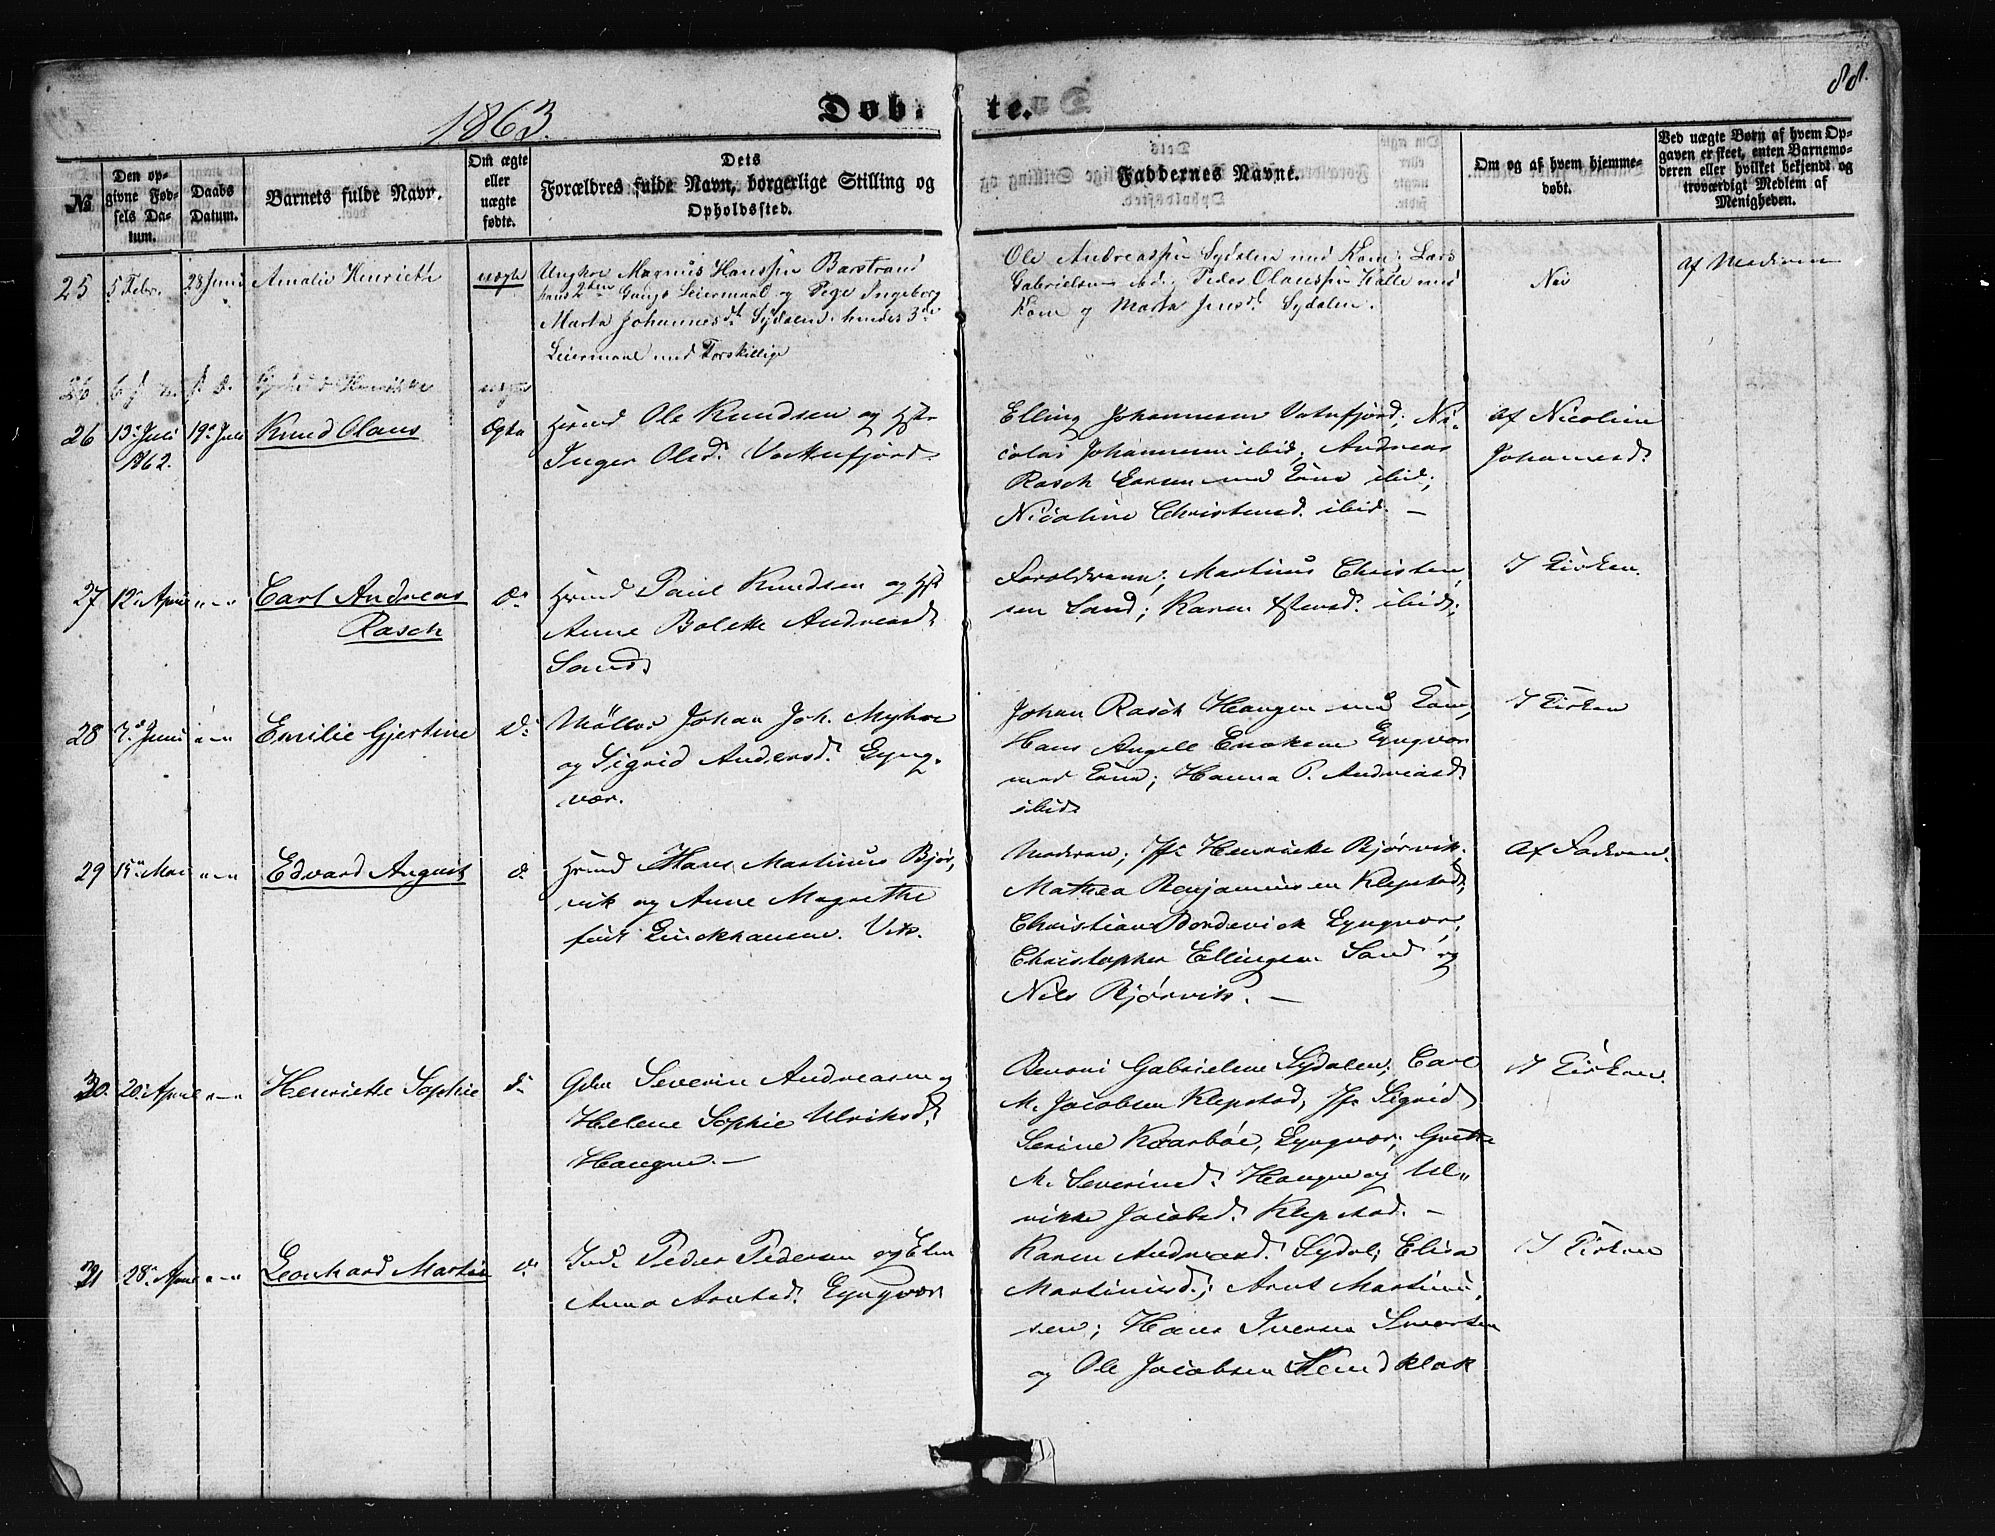 88.
1863.
Døb. te.
№
Den op-
givne Fød-
sels Da-
tum.
Daabs
Datum.
Barnets fulde Navn.
Om ægte
eller
uægte
fødte.
Dets
Forældres fulde Navn, borgerlige Stilling og
Opholdssted.
Faddernes Navne.
Om og af hvem hjemme-
døbt.
Ved uægte Børn af hvem Op-
gaven er skeet, enten Barnemo-
deren eller hvilket bekjendt og
troværdigt Medlem af
Menigheden.
25 5 Febr. 28 Juni Amalie Henriette uægte
Ungkre Magnus Hanssen Barstrand
hans 2den Gangs Leiermaal og Pige Ingeborg
Marta Johannesd. Sydalen hendes 3die
Leiermaal med Forskillige
Ole Andreassen Sydalen med Kone; Lars
Gabrielsen ; Peder Olaussen Kalle med
Kone og Marta Jensd. Sydalen.
Nei
af Moderen
26 Henrikke uægte
26 13. Juli 1862. 19. Juli Knud Olaus Ægte
Hmd Ole Knudsen og Hst
Inger Olsd. Vatterfjord
Elling Johannesen Vaterfjord; Ni-
colai Johannesen ibid; Andreas
Rasch Larsen med Kone ibid;
Nicoline Christensd. ibid. —
af Nicoline
Johannesd.
27 12. April Carl Andreas
Rasch
Do
Hmd Paul Knudsen og Hst
Anne Bolette Andreasd.
Sand.
Forældrene; Martinus Christen-
sen Sand; Karen Estensd. ibid;
I Kirken.
28 7. Juni Emilie Gjertine Do
Møller Johan Joh. Myhre
og Sigrid Andersd. Lyng-
vær.
Johan Rasch Haugen med Kone,
Hans Angell Enoksen Lyngvær
med Kone; Hanna P. Andreasd.
ibid.
I Kirken
29 15. Mai Edvard August do
Hmd Hans Martinus Bjør-
vik og Anne Magrethe
født Linckhausen. Vik.
Moderen; Jfr Henrikke Bjørvik.
Mathea Benjaminsen Klepstad,
Christian Bordevick Lyngvær;
Christopher Ellingsen Sand og
Nils Bjørvik. —
Af Faderen.
30. 20. April Henriette Sophie do
Gbr Severin Andreasen og
Helene Sophie Ulriksd.
Haugen. —
Benoni Gabrielsen Sydalen; Carl
M. Jacobsen Klepstad, Jfr Sigrid
Serine Kaarbøe, Lyngvær; Grethe
M. Severinsd. Haugen og Ul-
rikke Jacobsd. Klepstad. —
I Kirken.
31 28. April Leonhard Martin do
Ind. Peder Pedersen og Elen
Anna Arntsd. Lyngvær
Karen Andreasd. Sydal; Elisa
Martinusd.; Arnt Martinu-
sen; Hans Iversen Smorten
og Ole Jacobsen Sundklak
I Kirken